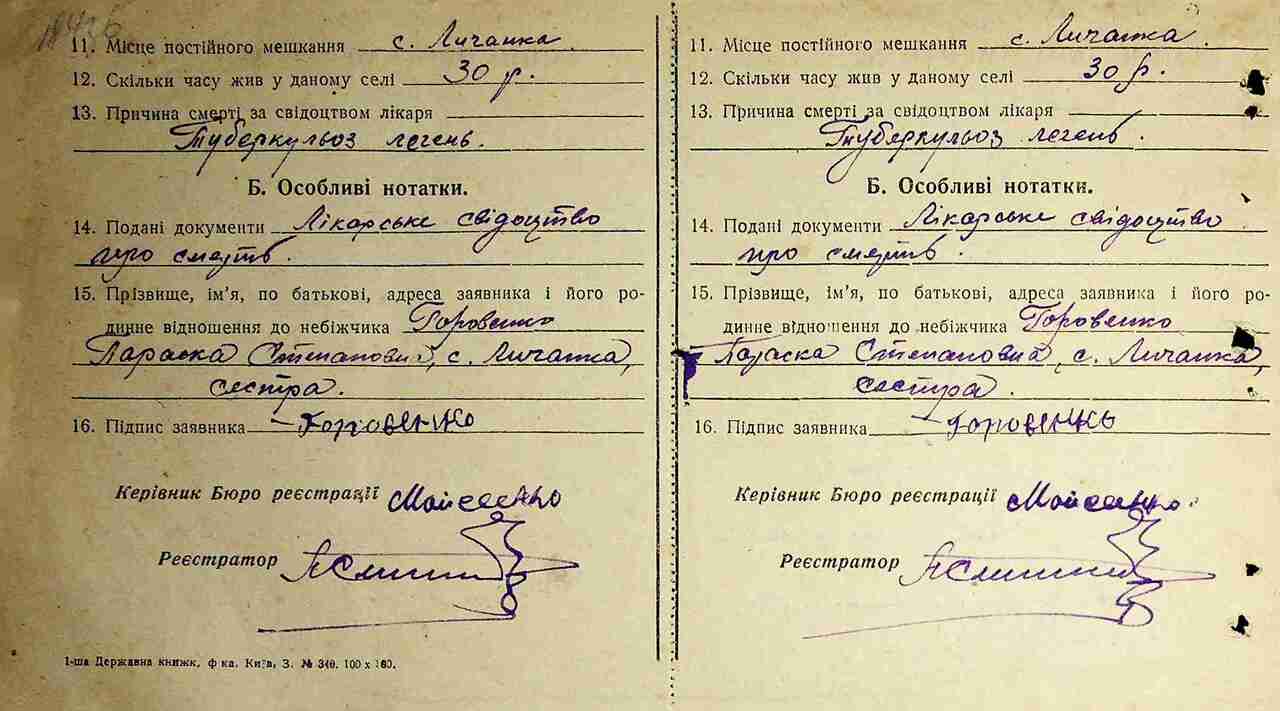 11. Місце постійного мешкання с. Личанка
12. Скільки часу жив у даному селі 30 р.
13. Причина смерті за свідоцтвом лікаря
Туберкульоз легень.
Б. Особливі нотатки.
14. Подані документи Лікарське свідоцтво
про смерть.
15. Прізвище, ім'я, по батькові, адреса заявника і його ро-
динне відношення до небіжчика Горовенко
Параска Степановна, с. Личанка,
сестра.
16. Підпис заявника Горовенко
Керівник Бюро реєстрації Мойсеенко
Реєстратор
1-ша Державна книжк. ф-ка. Київ, З. № 340. 100 х 160.
11. Місце постійного мешкання с. Личанка
12. Скільки часу жив у даному селі 30 р.
13. Причина смерті за свідоцтвом лікаря
Туберкульоз легень.
Б. Особливі нотатки.
14. Подані документи Лікарське свідоцтво
про смерть.
15. Прізвище, ім'я, по батькові, адреса заявника і його ро-
динне відношення до небіжчика Горовенко
Параска Степановна, с. Личанка,
сестра.
16. Підпис заявника Горовенко
Керівник Бюро реєстрації Мойсеенко
Реєстратор